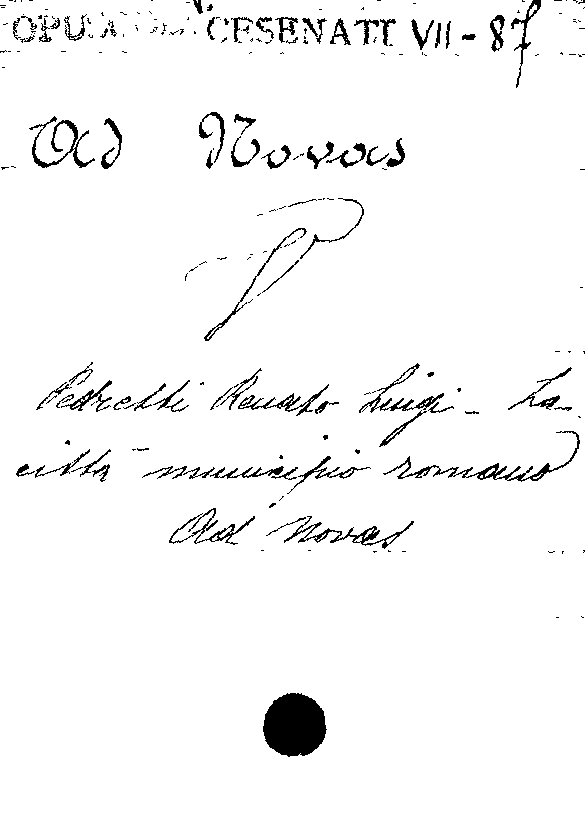 CESENATI VII-87
Ad Novas
V
Pedretti Renato Luigi - La
città municipio romano
Ad Novas